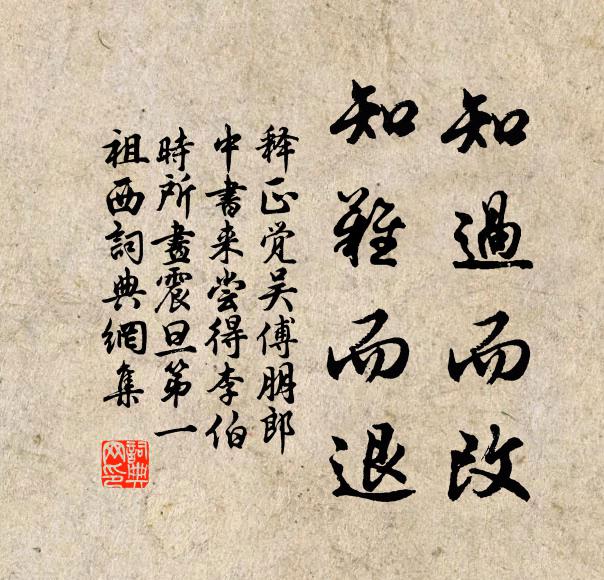 知過而改
知難而退
释正觉吴傅朋郎
中書来尝得李伯
時所畫震旦第一
祖西詞典網集
詞典
网印